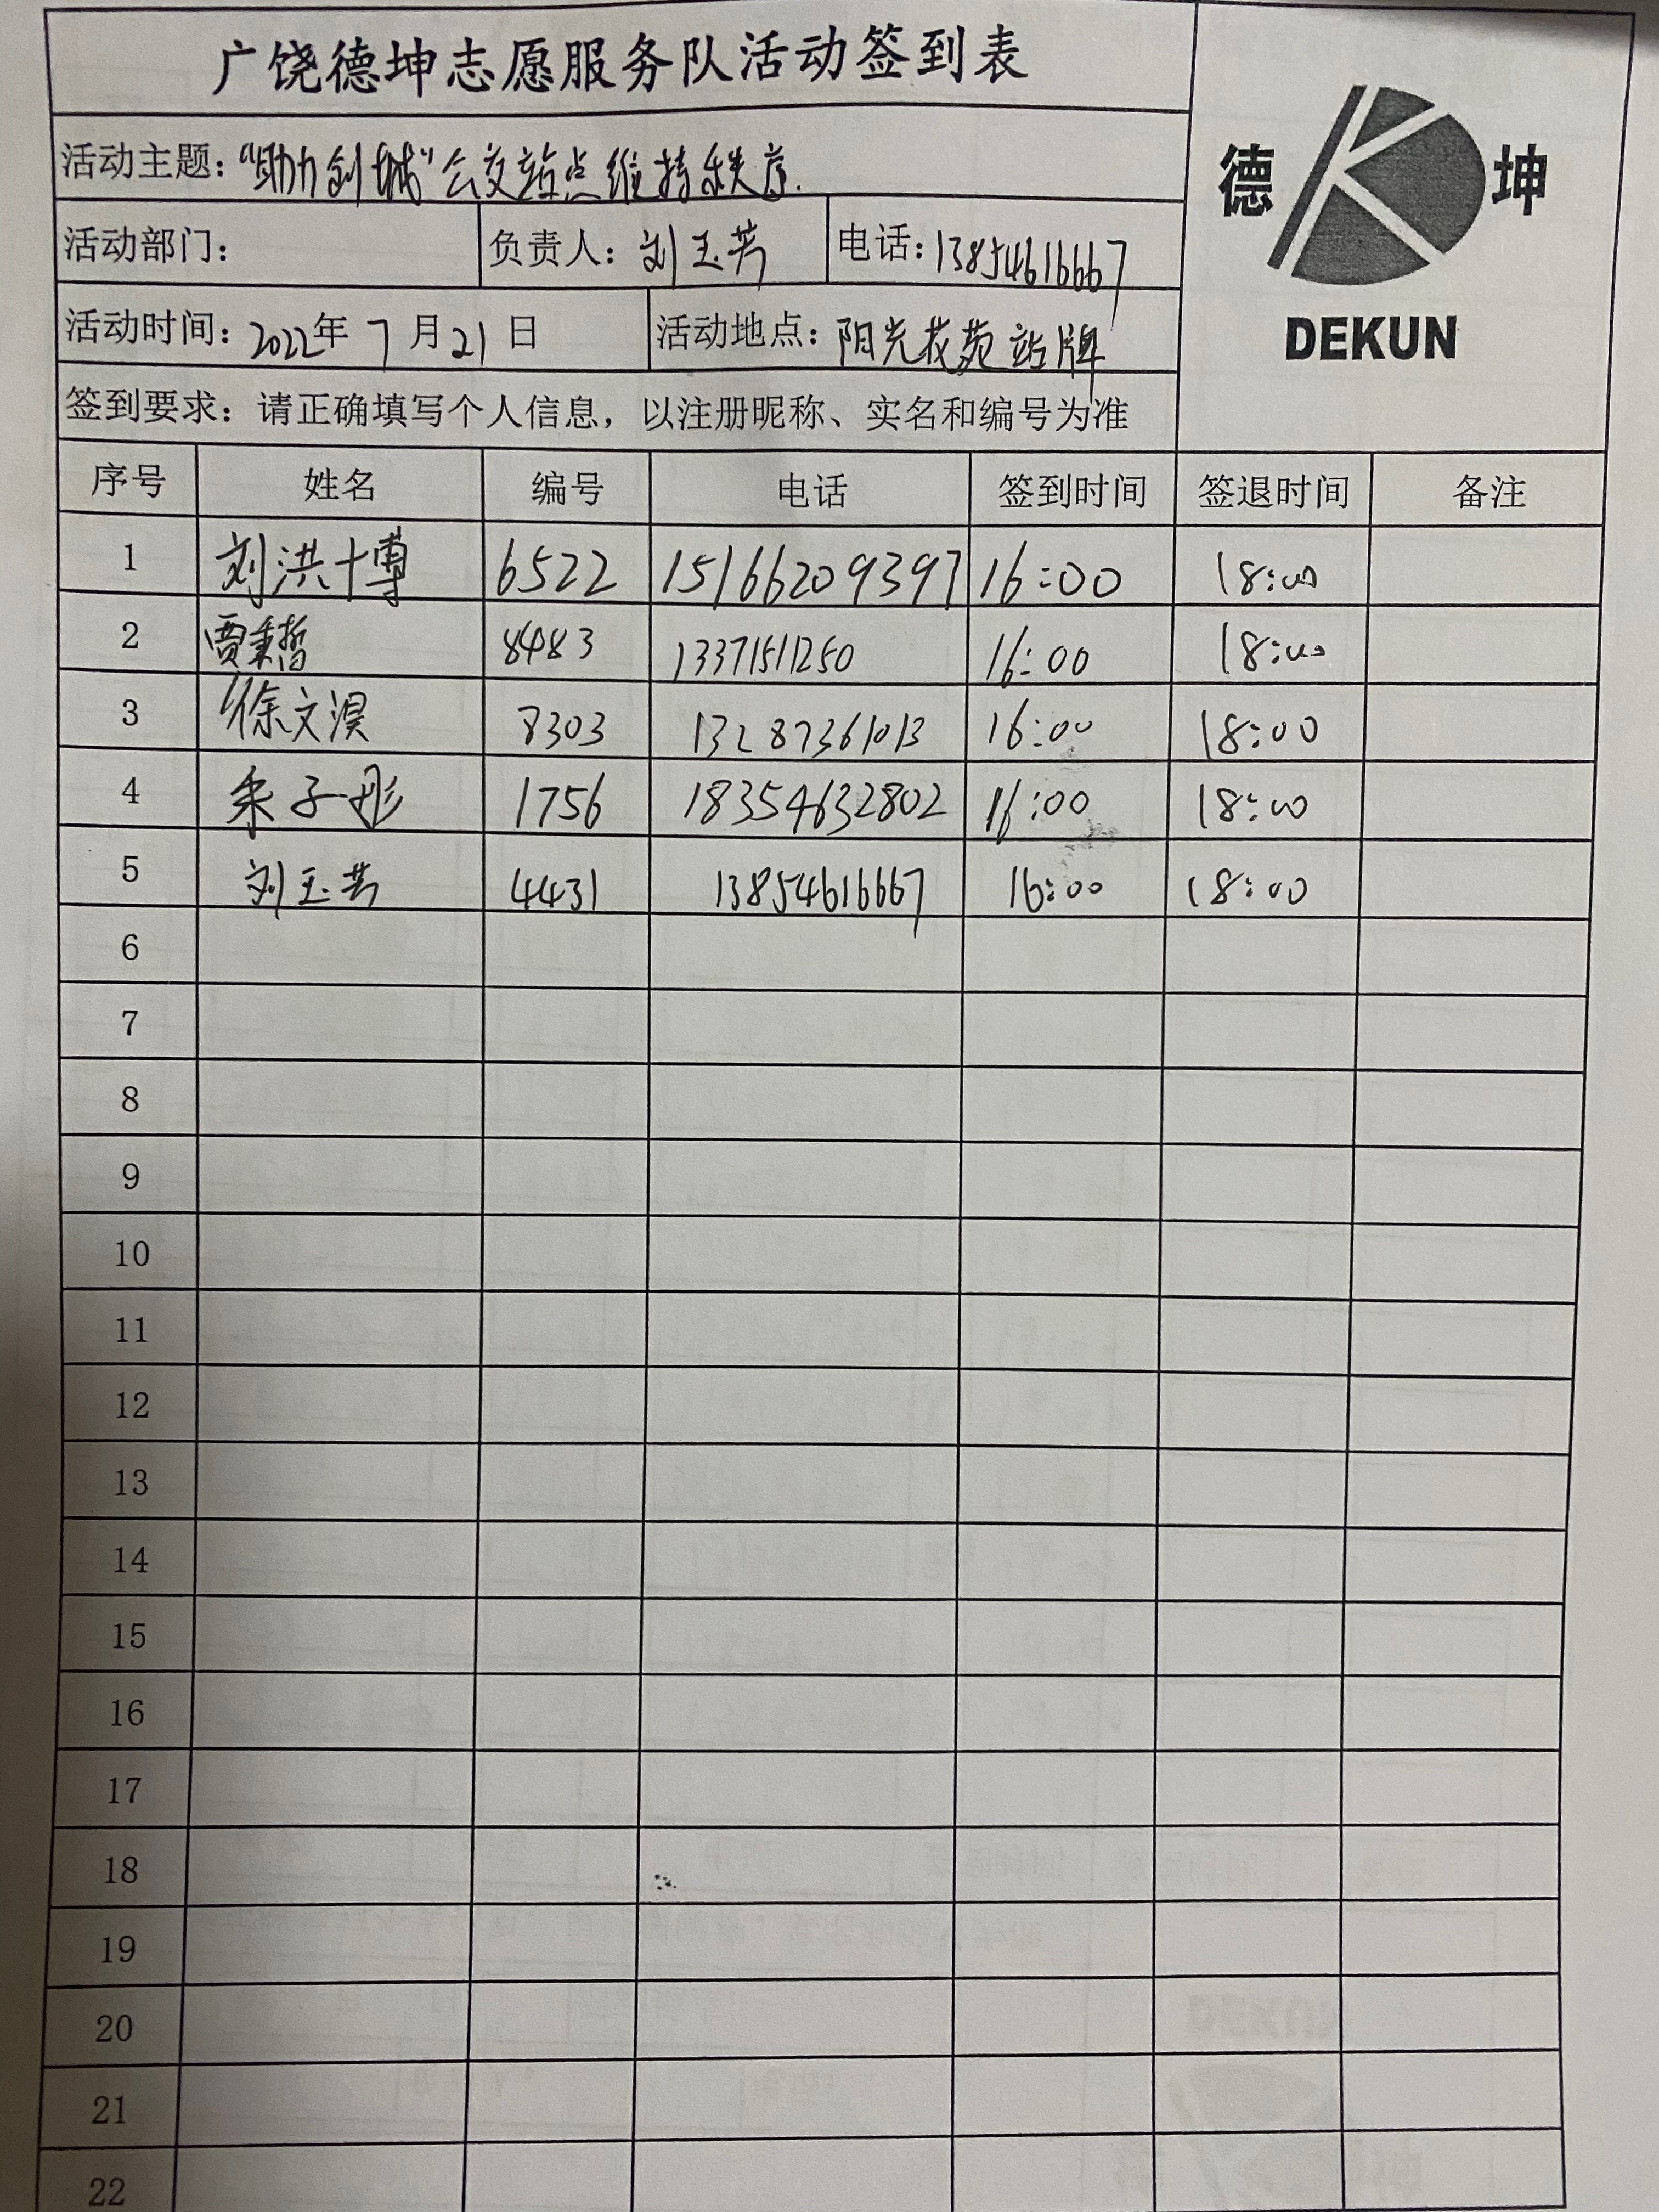 广饶德坤志愿服务队活动签到表
德 坤
DEKUN
活动主题：“助力创城”公交站点维持秩序.
活动部门： 负责人：刘玉芳 电话：13854616667
活动时间：2022年7月21日 活动地点：阳光花苑站牌
签到要求：请正确填写个人信息，以注册昵称、实名和编号为准
序号 姓名 编号 电话 签到时间 签退时间 备注
1 刘洪博 6522 15166209397 16:00 18:00
2 贾秉哲 8483 13371511250 16:00 18:00
3 徐文淏 8303 13287361013 16:00 18:00
4 朱子彤 1756 18354632802 16:00 18:00
5 刘玉芳 4431 13854616667 16:00 18:00
6
7
8
9
10
11
12
13
14
15
16
17
18
19
20
21
22